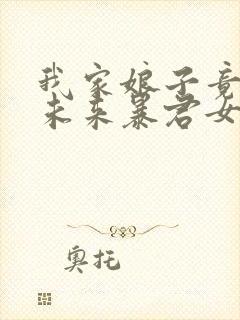 我家娘子竟
未来暴君女
奥托